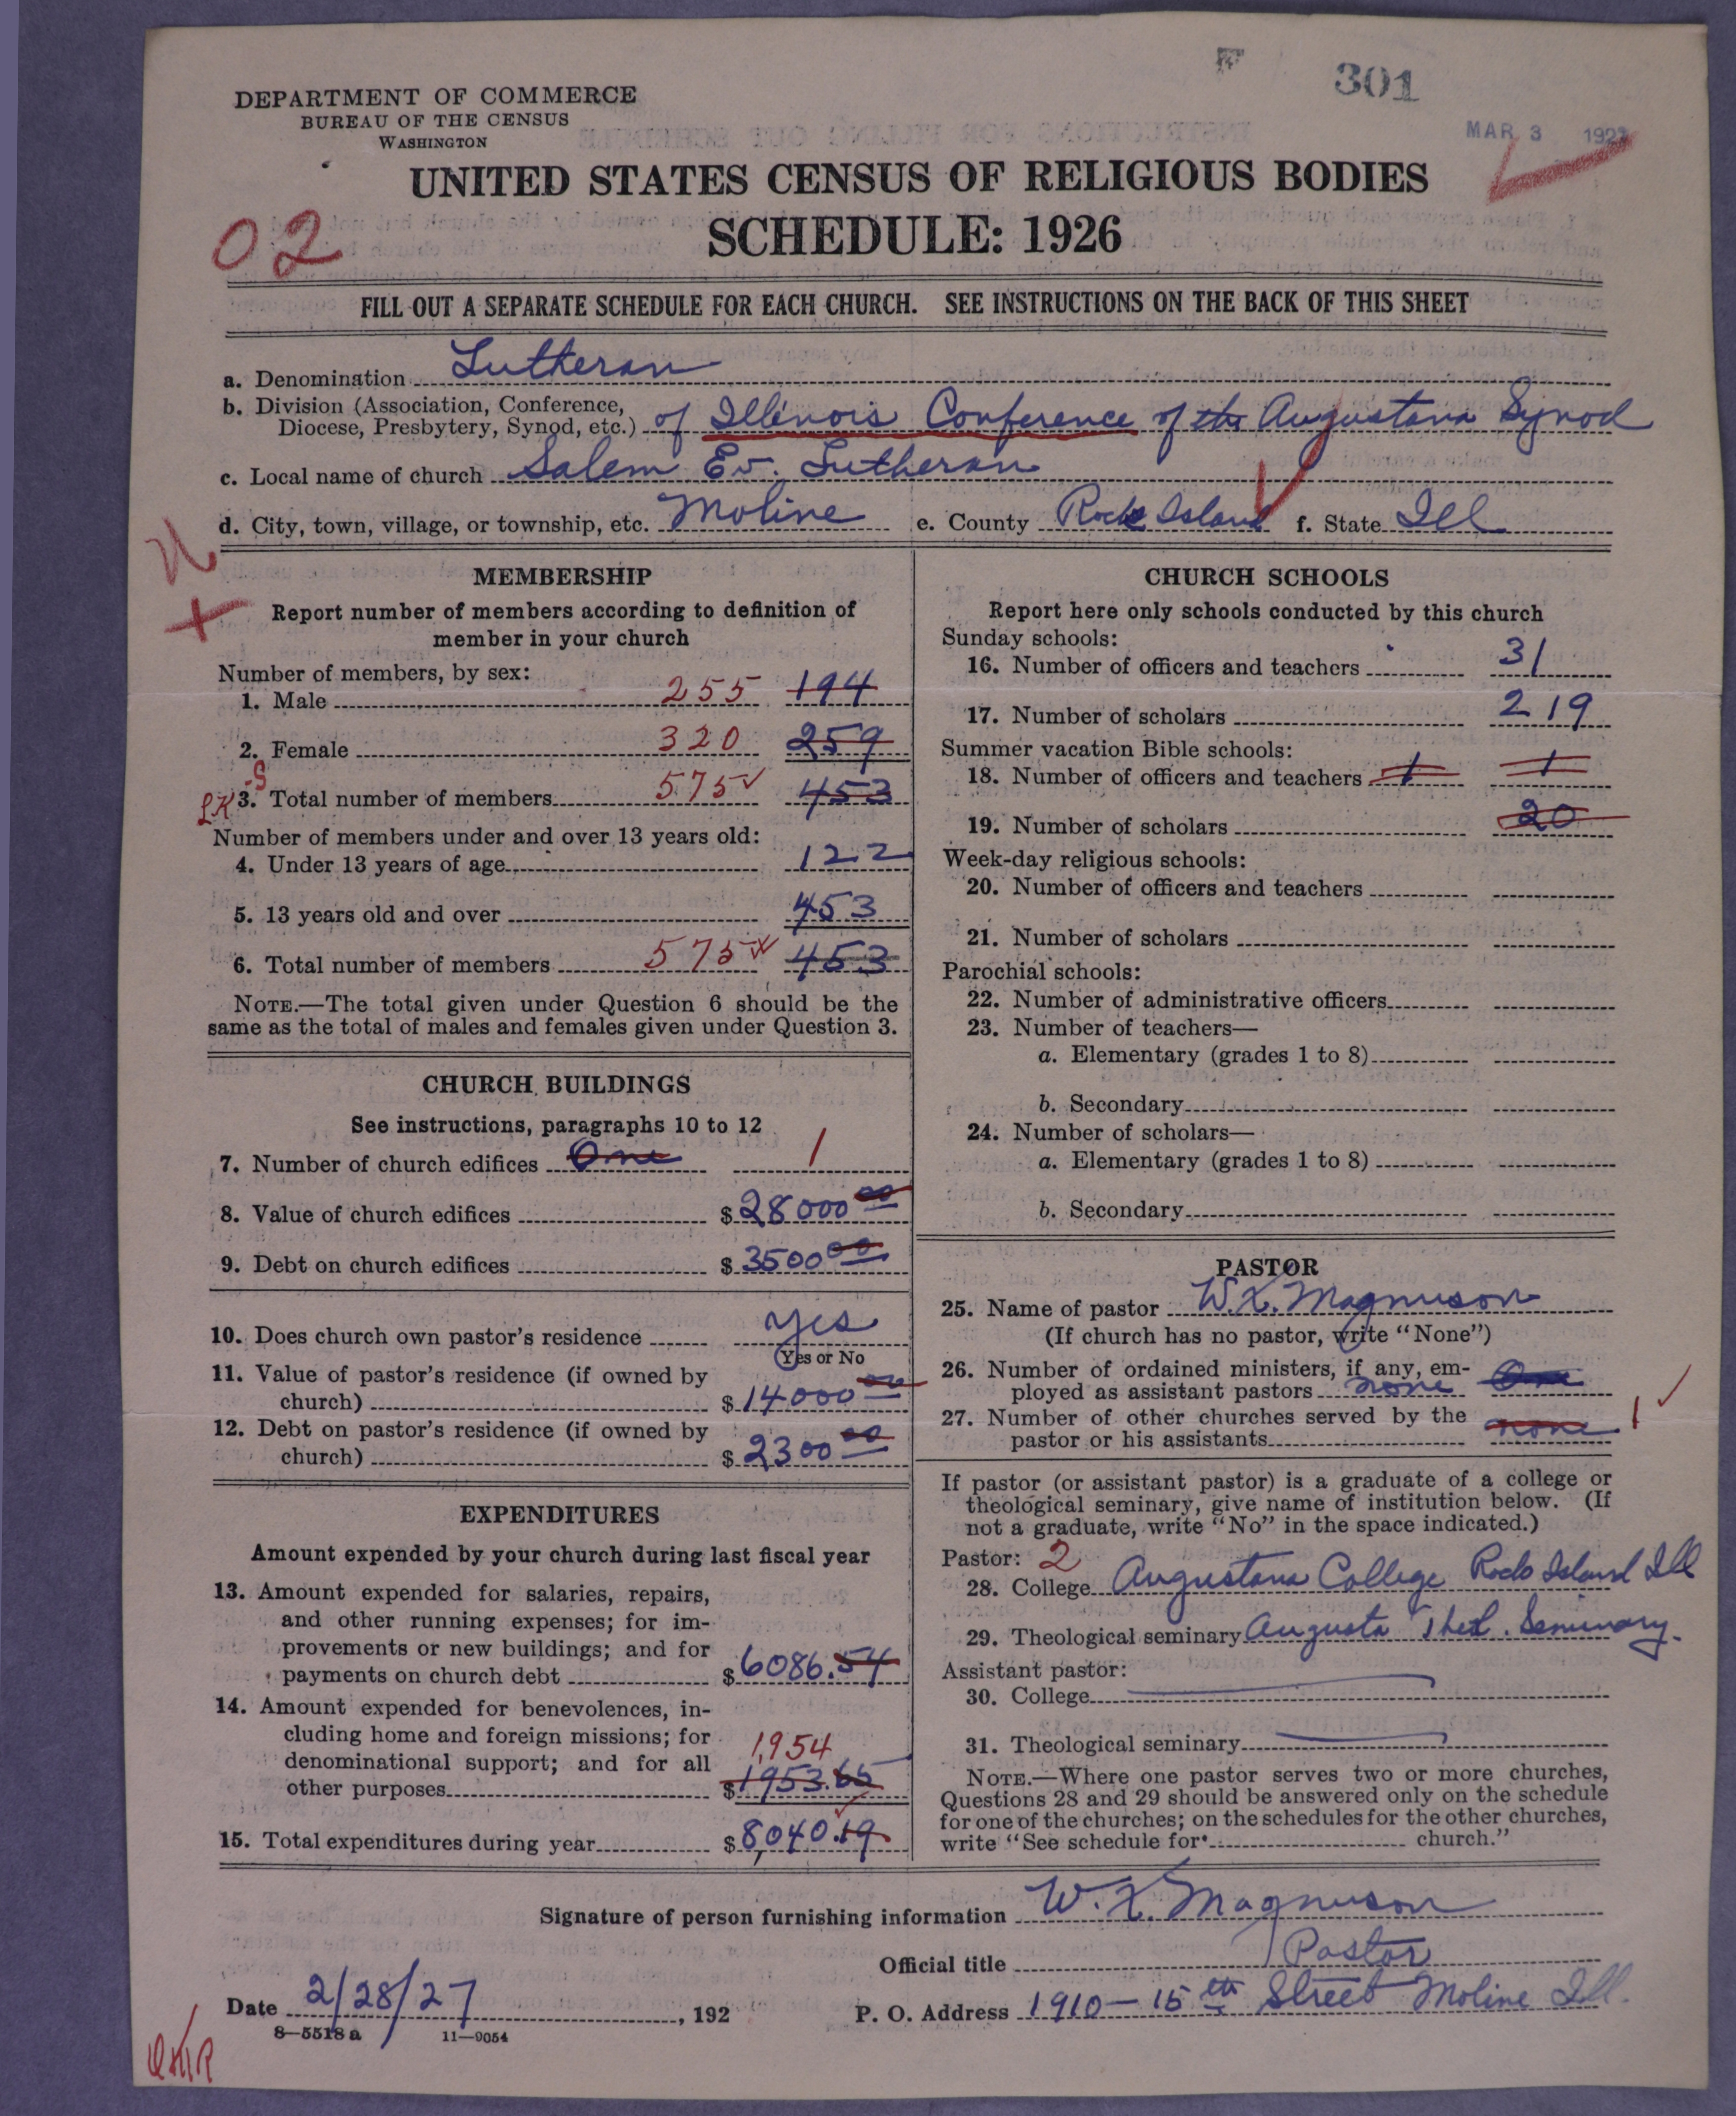 301
MAR 3 1927
DEPARTMENT OF COMMERCE
BUREAU OF THE CENSUS
WASHINGTON
UNITED STATES CENSUS OF RELIGIOUS BODIES
SCHEDULE: 1926
02
FILL OUT A SEPARATE SCHEDULE FOR EACH CHURCH. SEE INSTRUCTIONS ON THE BACK OF THIS SHEET
a. Denomination Lutheran
b. Division (Association, Conference,
Diocese, Presbytery, Synod, etc.) of Illinois Conference of the Augustana Synod
c. Local name of church Salem Ev. Lutheran
d. City, town, village, or township, etc. Moline e. County Rock Island f. State Ill
MEMBERSHIP
Report number of members according to definition of
member in your church
Number of members, by sex:
1. Male 255 194
2. Female 320 259
3. Total number of members 575 453
Number of members under and over 13 years old:
4. Under 13 years of age 122
5. 13 years old and over 453
6. Total number of members 575 453
NOTE.—The total given under Question 6 should be the
same as the total of males and females given under Question 3.
CHURCH BUILDINGS
See instructions, paragraphs 10 to 12
7. Number of church edifices One 1
8. Value of church edifices $28000 00
9. Debt on church edifices $3500 00
10. Does church own pastor's residence yes
(Yes or No
11. Value of pastor's residence (if owned by
church) $14000 00
12. Debt on pastor's residence (if owned by
church) $2300 00
EXPENDITURES
Amount expended by your church during last fiscal year
13. Amount expended for salaries, repairs,
and other running expenses; for im-
provements or new buildings; and for
payments on church debt $6086.54
14. Amount expended for benevolences, in-
cluding home and foreign missions; for
denominational support; and for all 1,954
other purposes $1953.65
15. Total expenditures during year $8,040.19
CHURCH SCHOOLS
Report here only schools conducted by this church
Sunday schools:
16. Number of officers and teachers 31
17. Number of scholars 219
Summer vacation Bible schools:
18. Number of officers and teachers 1 1
19. Number of scholars 20
Week-day religious schools:
20. Number of officers and teachers
21. Number of scholars
Parochial schools:
22. Number of administrative officers
23. Number of teachers—
a. Elementary (grades 1 to 8)
b. Secondary
24. Number of scholars—
a. Elementary (grades 1 to 8)
b. Secondary
PASTOR
25. Name of pastor W.X. Magnuson
(If church has no pastor, write "None")
26. Number of ordained ministers, if any, em-
ployed as assistant pastors none One
27. Number of other churches served by the
pastor or his assistants none 1
If pastor (or assistant pastor) is a graduate of a college or
theological seminary, give name of institution below. (If
not a graduate, write "No" in the space indicated.)
Pastor: 2
28. College Augustana College Rock Island Ill
29. Theological seminary Augusta Theol. Seminary.
Assistant pastor:
30. College
31. Theological seminary
NOTE.—Where one pastor serves two or more churches,
Questions 28 and 29 should be answered only on the schedule
for one of the churches; on the schedules for the other churches,
write "See schedule for church."
Signature of person furnishing information W.X. Magnuson
Official title Pastor
Date 2/28/27, 192 P. O. Address 1910-15th Street Moline Ill.
8—5518 a 11—9054